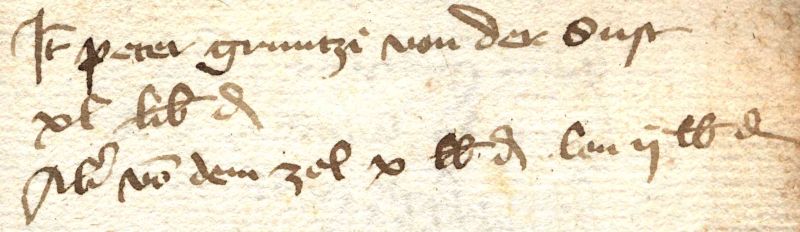 It peter gruntzi von der Sust
xl lib d
Alr vō dem zol x lb d len ij lb d